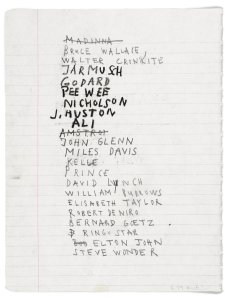 MADONNA
BRUCE WALLACE,
WALTER CRONKITE
JARMUSH
GODARD
PEE WEE
NICHOLSON
J. HUSTON
ALI
AMSTROI
JOHN GLENN
MILES DAVIS
KELLE
PRINCE
DAVID LYNCH
WILLIAM BURROWS
ELISABETH TAYLOR
ROBERT DE NIRO
BERNARD GOETZ .
RINGO STAR
ELTON JOHN
STEVE WONDER